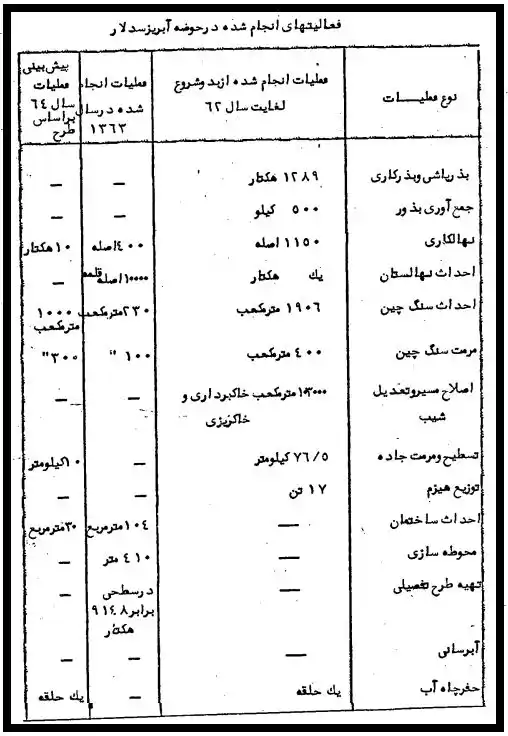 فعالیتهای انجام شده درحوضه آبریزسد لار
نوع فعلیــات
فعلیات انجام شده ازبد وشروع
لغایت سال ٦٢
فعلیات انجام
شده درسال
١٣٦٣
پیش بینی
فعلیات
سال ٦٤
براساس
طرح
بذرپاشی وبذرکاری ١٢٨٩ هکتار — —
جمع آوری بذور ٥٠٠ کیلو — —
نهالکاری ١١٥٠ اصله ٤٠٠ اصله ١٠ هکتار
احداث نهالستان یك هکتار ١٠٠٠٠ اصله قلمه —
احداث سنگ چین ١٩٠٦ مترمکعب ٢٣٠ مترمکعب ١٠٠٠
مترمکعب
مرمت سنگ چین ٤٠٠ مترمکعب ١٠٠ " ٣٠٠ "
اصلاح مسیروتعدیل مترمکعب خاکبرداری و — —
شیب خاکریزی
تسطیح ومرمت جاده ٧٦/٥ کیلومتر — ١٠ کیلومتر
توزیع هیزم ١٧ تن — —
احداث ساختمان — ١٠٤ مترمربع ٣٠ مترمربع
محوطه سازی — ٤١٠ متر —
تهیه طرح تفصیلی — درسطحی —
برابر ٩١٤٨
هکتار
آبرسانی — — —
حفرچاه آب یك حلقه — یك حلقه